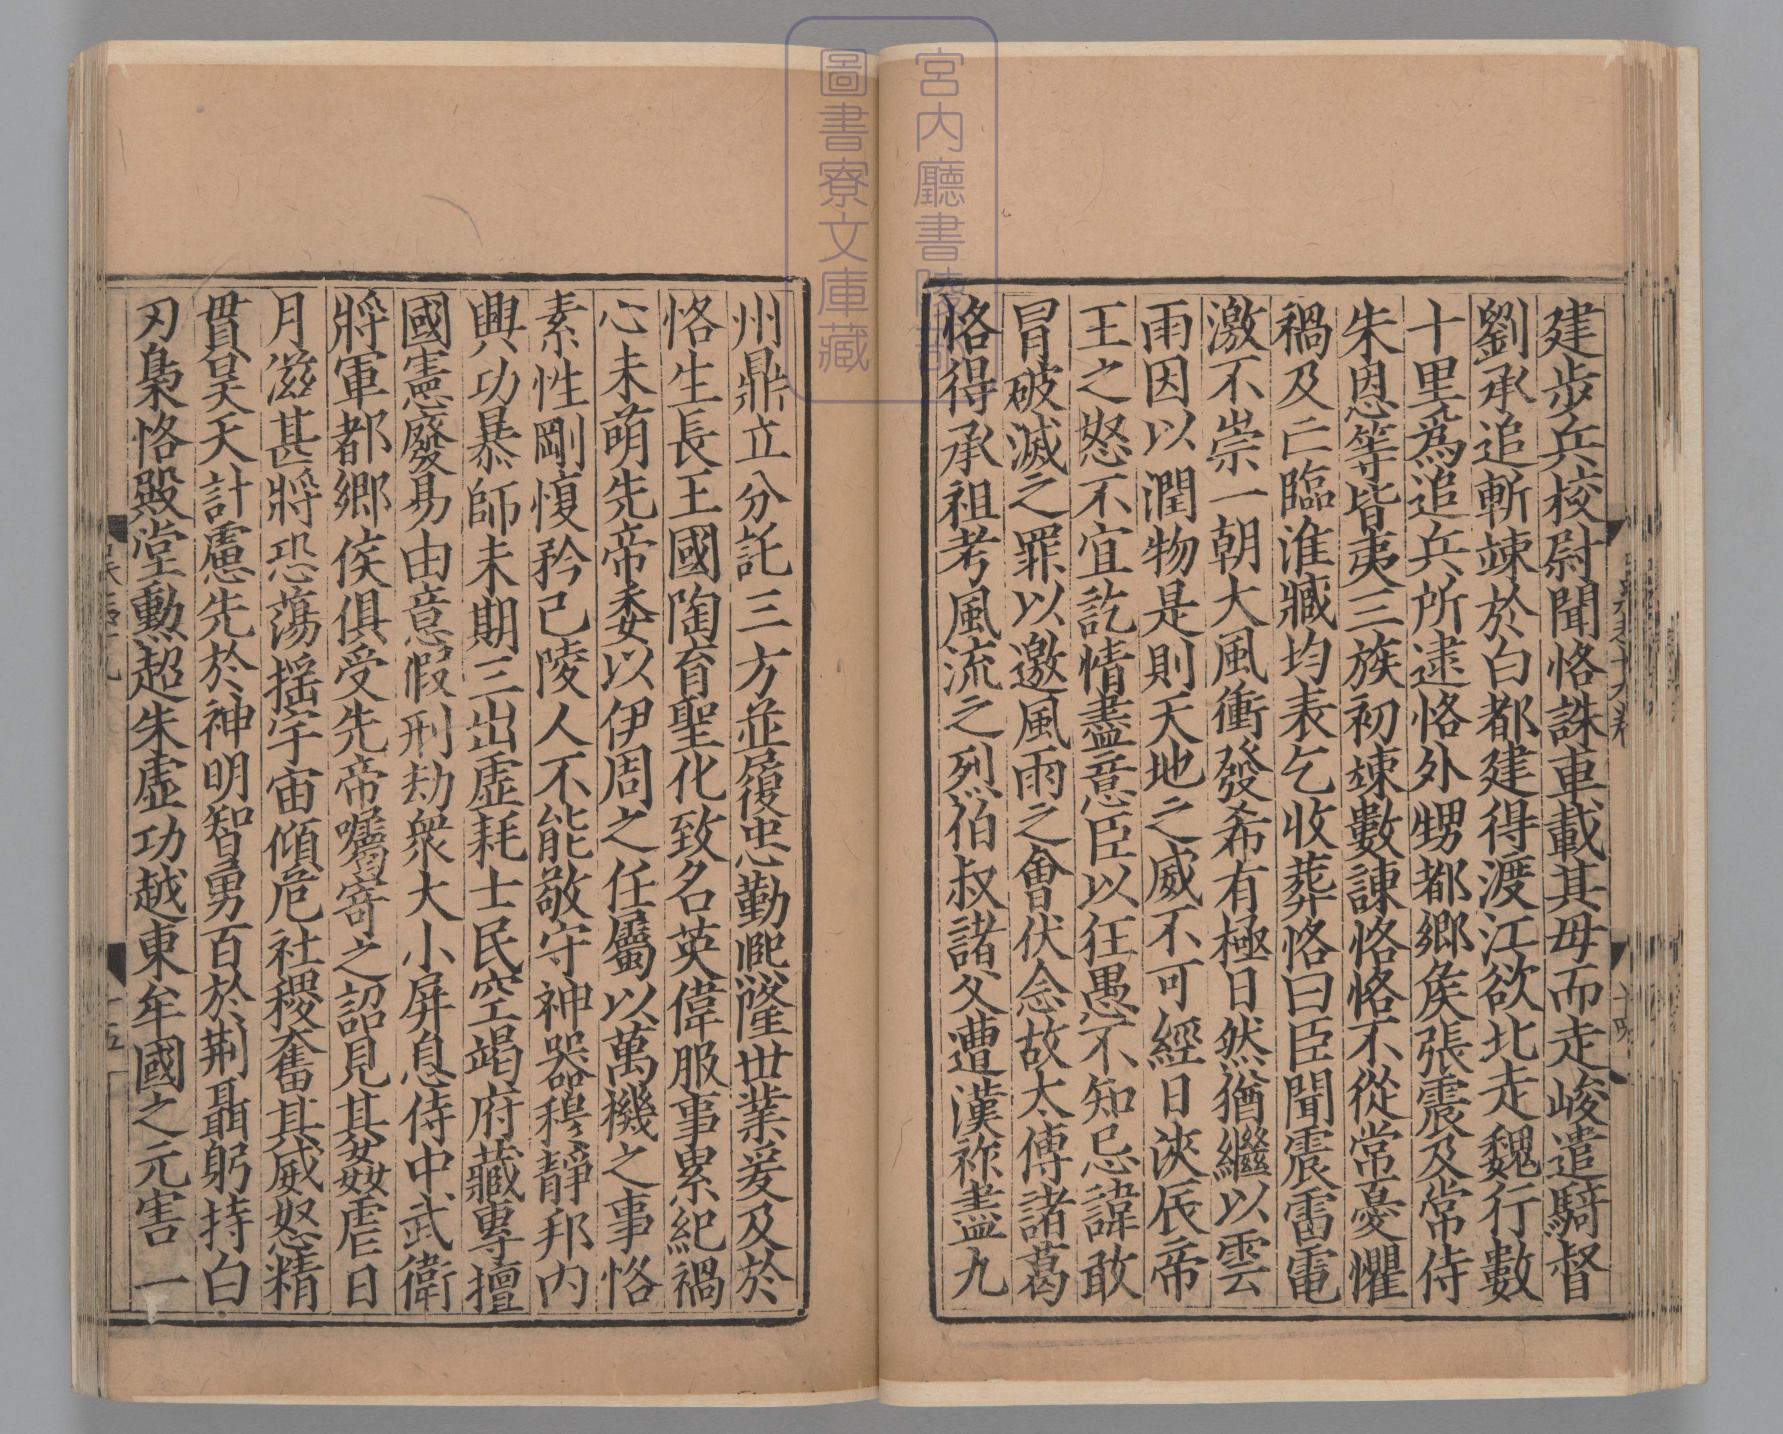 建步兵校尉聞恪誅車載其母而走峻遣騎督
劉承追斬竦於白都建得渡江欲北走魏行數
十里爲追兵所逮恪外甥都鄉矦張震及常侍
朱恩等皆夷三族初竦數諫恪恪不從常憂懼
禍及亡臨淮臧均表乞收葬恪曰臣聞震雷電
激不崇一朝大風衝發希有極日然猶繼以雲
雨因以潤物是則天地之威不可經日浹辰帝
王之怒不宜訖情盡意臣以狂愚不知忌諱敢
冒破滅之罪以邀風雨之會伏念故太傅諸葛
恪得承祖考風流之烈伯叔諸父遭漢祚盡九
州鼎立分託三方並履忠勤熈隆世業爰及於
恪生長王國陶育聖化致名英偉服事累紀禍
心未萌先帝委以伊周之任屬以萬機之事恪
素性剛愎矜己陵人不能敬守神器穆靜邦内
興功暴師未期三出虛耗士民空竭府藏專擅
國憲廢易由意假刑劫衆大小屏息侍中武衛
將軍都鄉矦俱受先帝囑寄之詔見其姦虐日
月滋甚將恐蕩揺宇宙傾危社稷奮其威怒精
貫昊天計慮先於神明智勇百於荆聶躬持白
刃梟恪殿堂勳超朱虛功越東牟國之元害一
宮内廳書陵部
圖書寮文庫藏